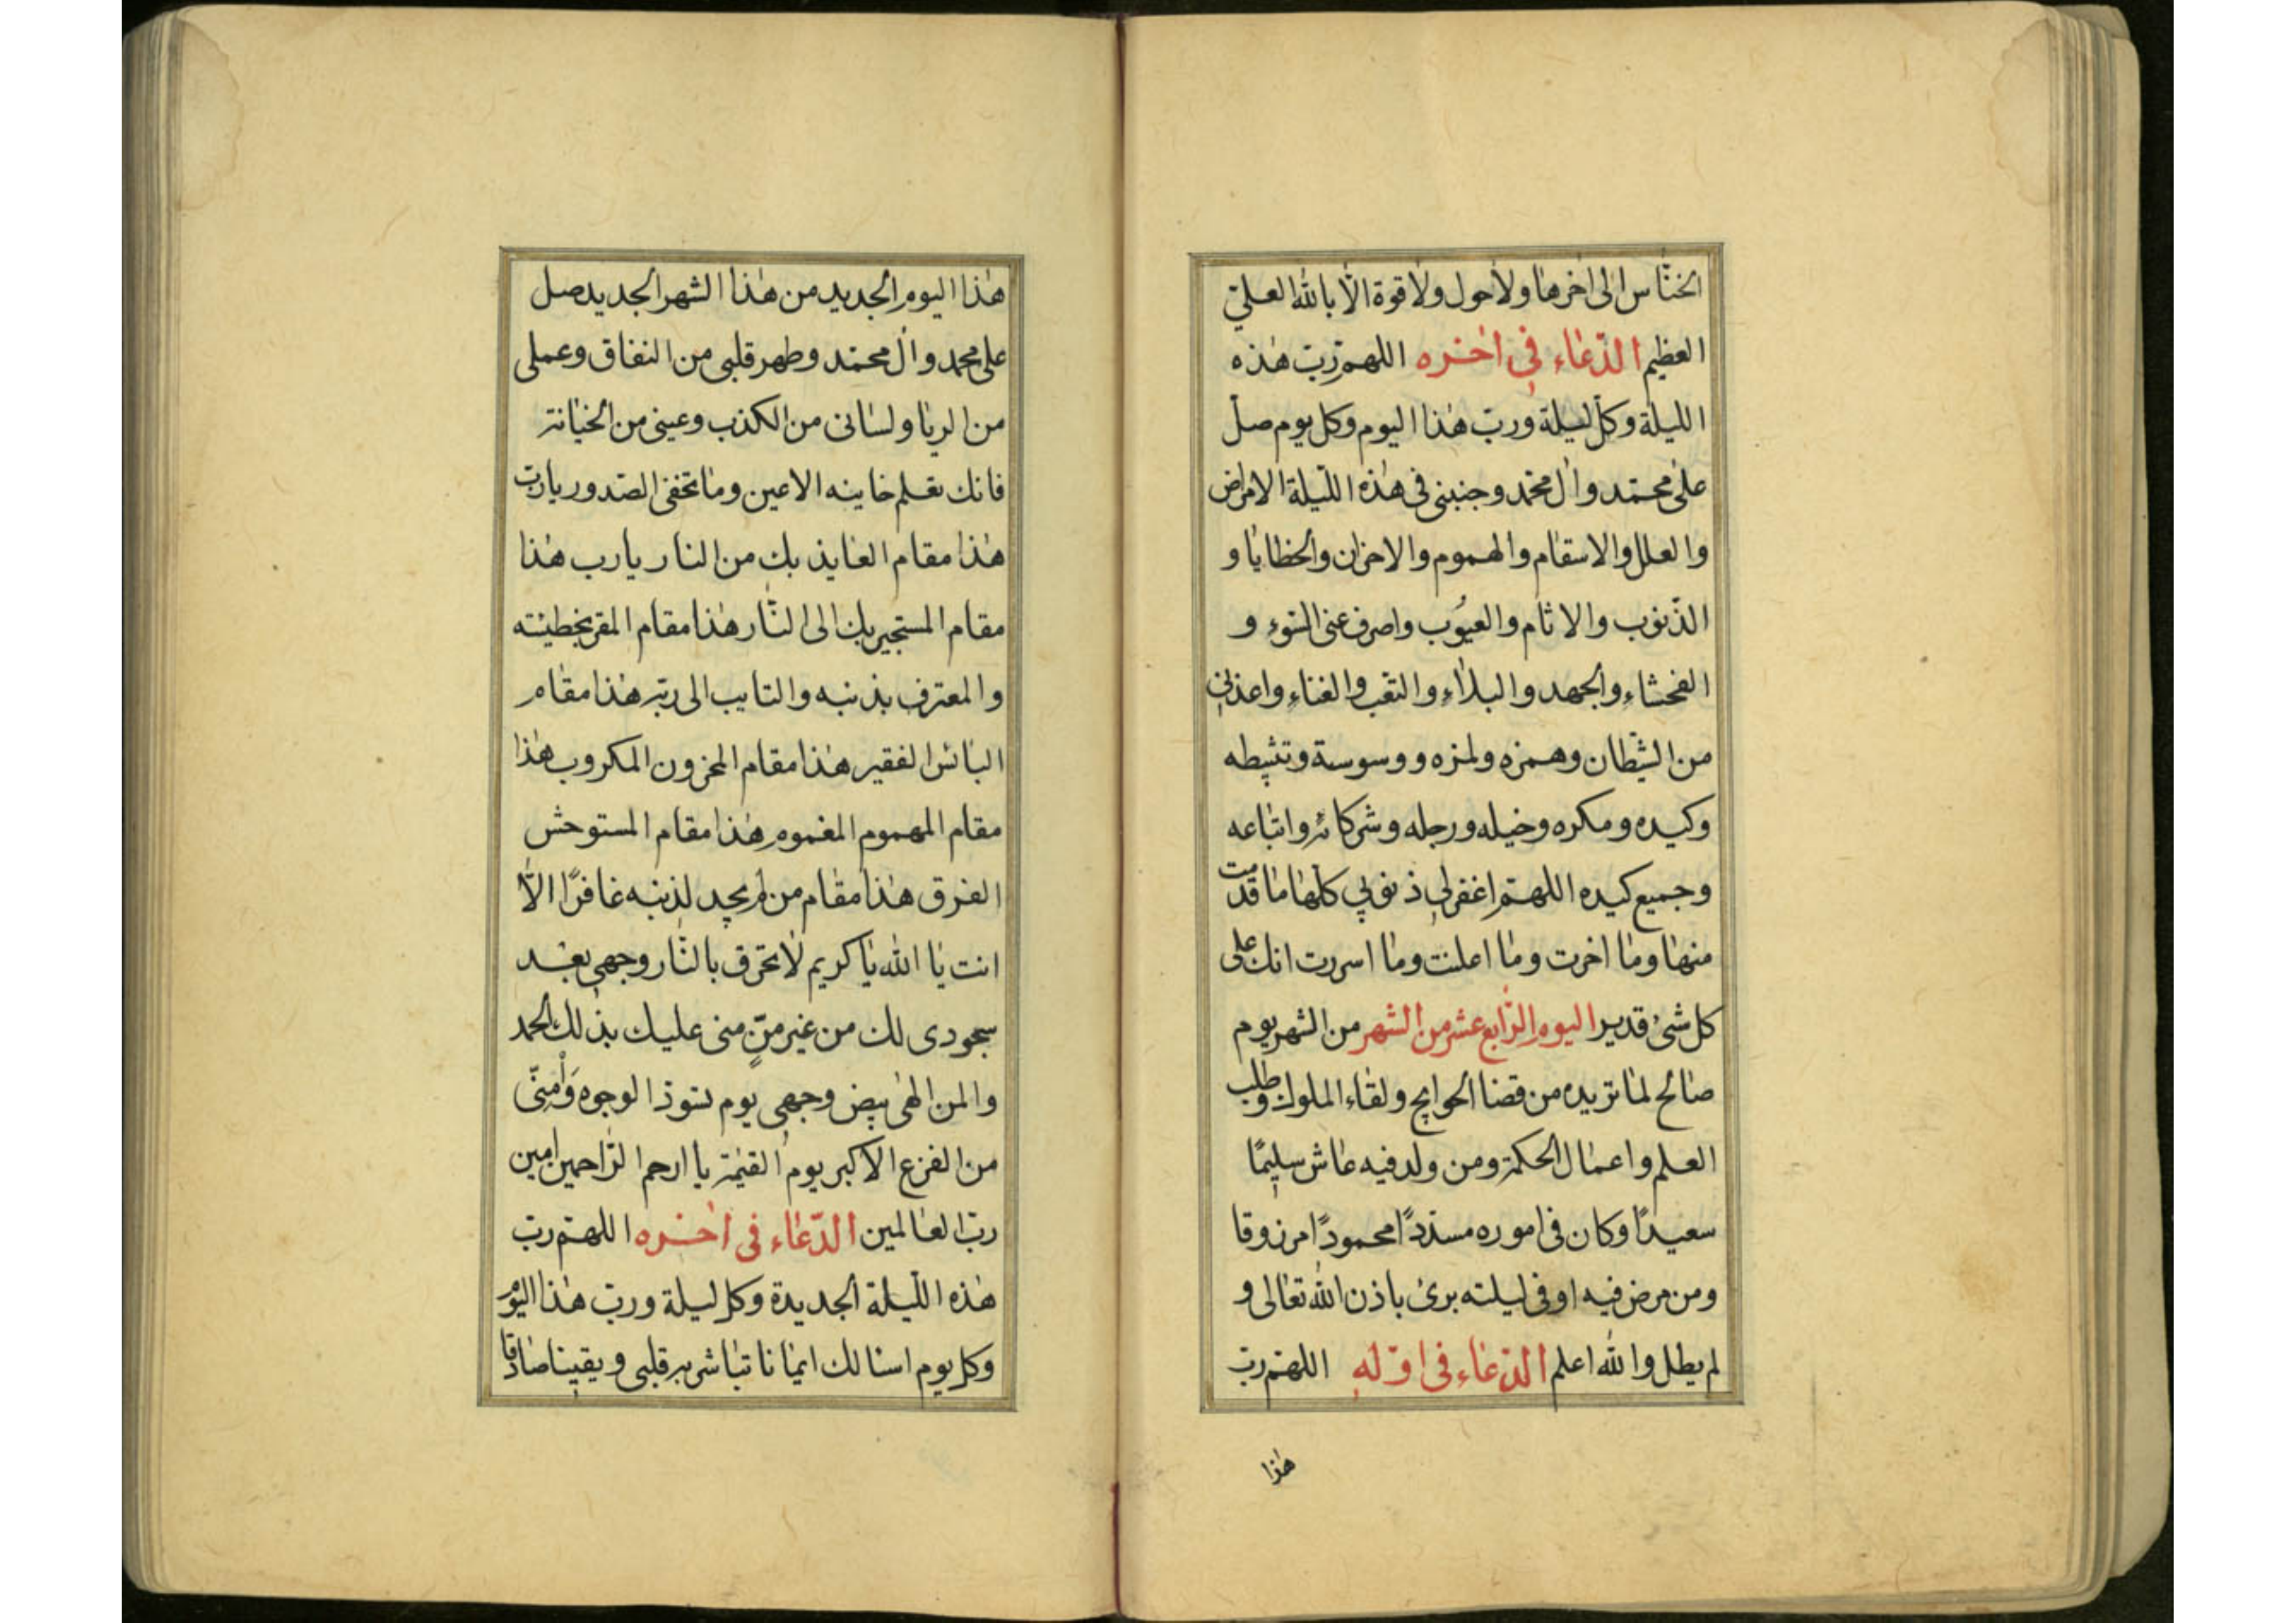 الخنّاس الى اخرها ولا حول ولا قوة الّا بالله العليّ
العظيم الدّعاء فى اخره اللهم ربّ هذه
الليلة وكلّ ليلة وربّ هذا اليوم وكل يوم صلّ
على محمّد وال محمّد وجنبنى فى هذه اللّيلة الامراض
والعلل والاسقام والهموم والاحزان والخطايا و
الذّنوب والاثام والعيُوب واصرف عنى السّوء و
الفحشاء والجهد والبلاء والتعب والغناء واعذنى
من الشّيطان وهمزه ولمزه ووسوسة وتثبيطه
وكيده ومكره وخيله ورجله وشركائه واتباعه
وجميع كيده اللهمّ اغفرلى ذنوبي كلها ما قدّمت
منها وما اخرت وما اعلنت وما اسررت انك على
كل شئ قدير اليوم الرّابع عشر من الشهر من الشهر يوم
صالح لما تريده من قضا الحوايج ولقاء الملوك وطلب
العلم واعمال الحكمة ومن ولد فيه عاش سليمًا
سعيدًا وكان فى اموره مسدّدًا محمودًا مرزوقا
ومن مرض فيه او فى ليلته برئ باذن الله تعالى و
لم يطل والله اعلم الدّعاء فى اوّله اللهمّ ربّ
هذا
هذا اليوم الجديد من هذا الشهر الجديد صل
على محمد وال محمّد وطهر قلبى من النفاق وعملى
من الريا ولسانى من الكذب وعينى من الخيانة
فانك تعلم خاينه الاعين وما تخفى الصّدور يا ربّ
هذا مقام العايذ بك من النار يا رب هذا
مقام المستجير بك الى النّار هذا مقام المقر بخطيئته
والمعترف بذنبه والتايب الى ربّه هذا مقام
البائس الفقير هذا مقام المحزون المكروب هذا
مقام المهموم المغموم هذا مقام المستوحش
الفرق هذا مقام من لم يجد لذنبه غافرًا الّا
انت يا الله يا كريم لا تحرق بالنّار وجهى بعد
سجودى لك من غير منٍّ منى عليك بذلك الحمد
والمن الهى بيض وجهى يوم تسوّد الوجوه وَاٰمِنّى
من الفزع الاكبر يوم القيٰمة يا ارحم الرّاحمين امين
ربّ العالمين الدّعاء فى اخره اللهمّ ربّ
هذه اللّيلة الجديدة وكل ليلة وربّ هذا اليوم
وكل يوم اسئالك ايمانا تباشر به قلبى ويقينا صادقا